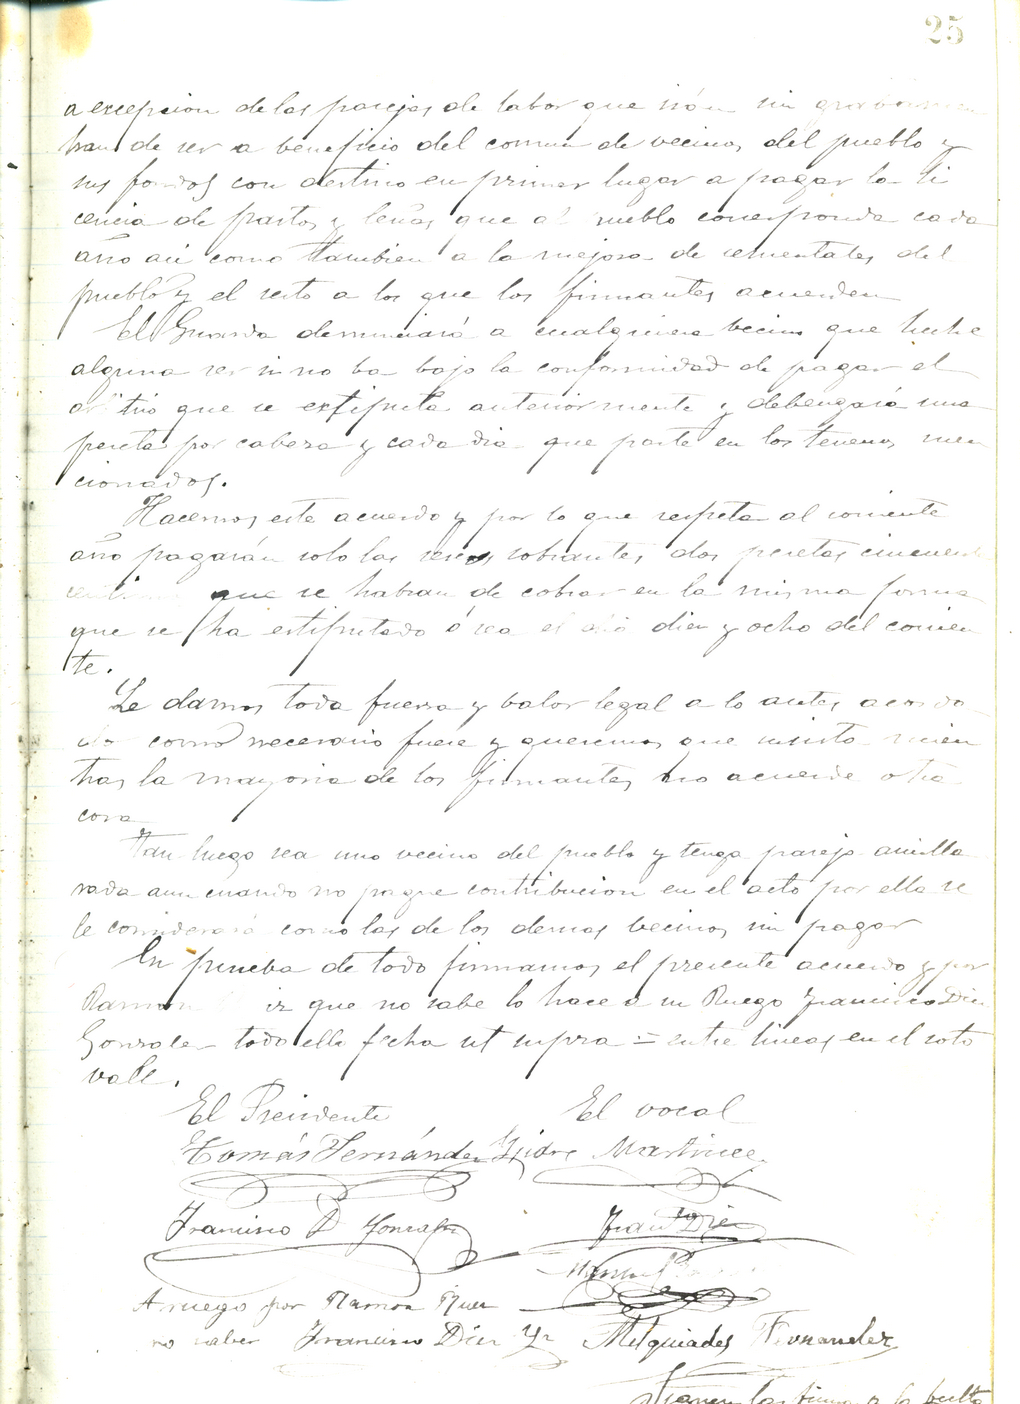 25
a excepcion de las parejas de labor que irán sin
han de ser a beneficio del comun de vecinos del pueblo y
sus fondos con destino en primer lugar a pagar la li
cencia de pastos y leñas que al pueblo corresponda cada
año asi como tambien a la mejora de sementales del
pueblo y el resto a los que los firmantes acuerden
El Guarda denunciará a cualquiera vecino que heche
alguna res si no ba bajo la conformidad de pagar el
arbitrio que se extipula anteriormente y debengará una
peseta por cabeza y cada dia que paste en los terrenos men
cionados.
Hacemos este acuerdo y por lo que respeta al corriente
año pagarán solo las reses sobrantes dos pesetas cincuenta
centimos que se habran de cobrar en la misma forma
que se ha estipulado ó sea el dia diez y ocho del corrien
te.
Le damos toda fuerza y balor legal a lo antes acorda
do como necesario fuere y queremos que insista mien
tras la mayoria de los firmantes no acuerde otra
cosa
Tan luego sea uno vecino del pueblo y tenga pareja amilla
rada aun cuando no pague contribucion en el acto por ella se
le considerará como las de los demas becinos sin pagar
En prueba de todo firmamos el presente acuerdo y por
Ramon que no sabe lo hace a su Ruego Francisco Diez
Gonzalez todo ello fecha ut supra = entre lineas en el soto
vale.
El Presidente El vocal
Tomás Fernández Ysidro Martinez
Francisco D Gonzalez Juan Diez
Manuel
A ruego por Ramon Ruiz
no saber Francisco Diez Melquiades Fernandez
a la buelta